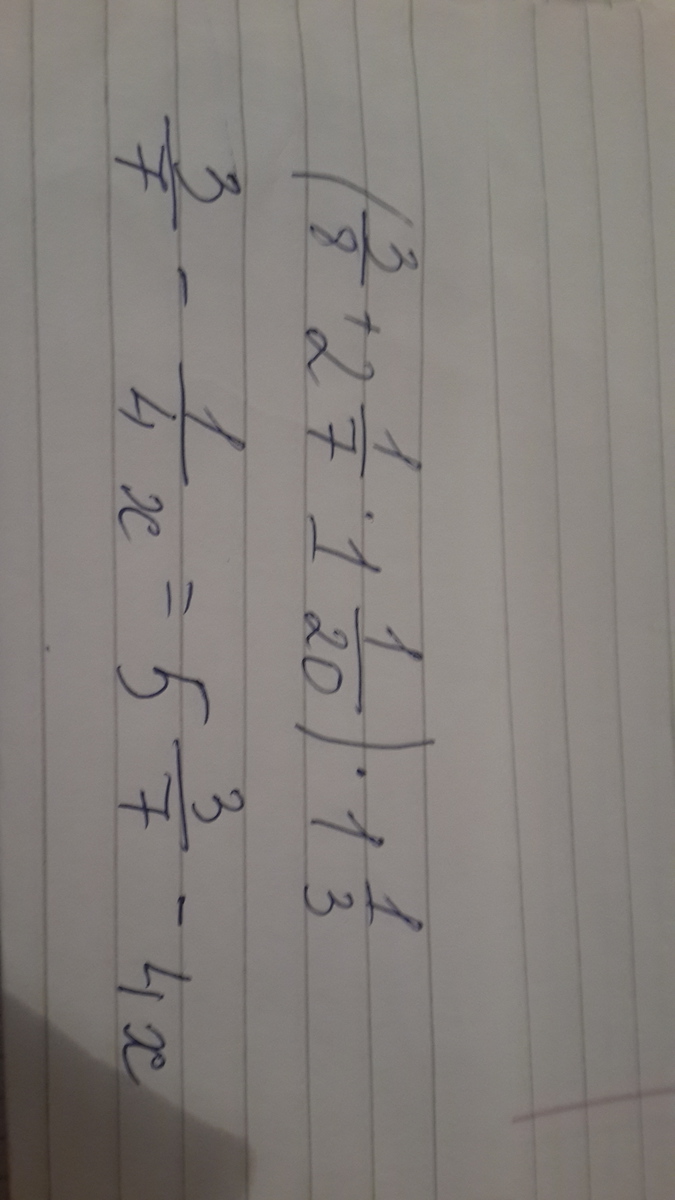 (3/8 + 2 1/7 · 1 1/20) · 1 1/3
3/7 - 1/4 x = 5 3/7 - 4x